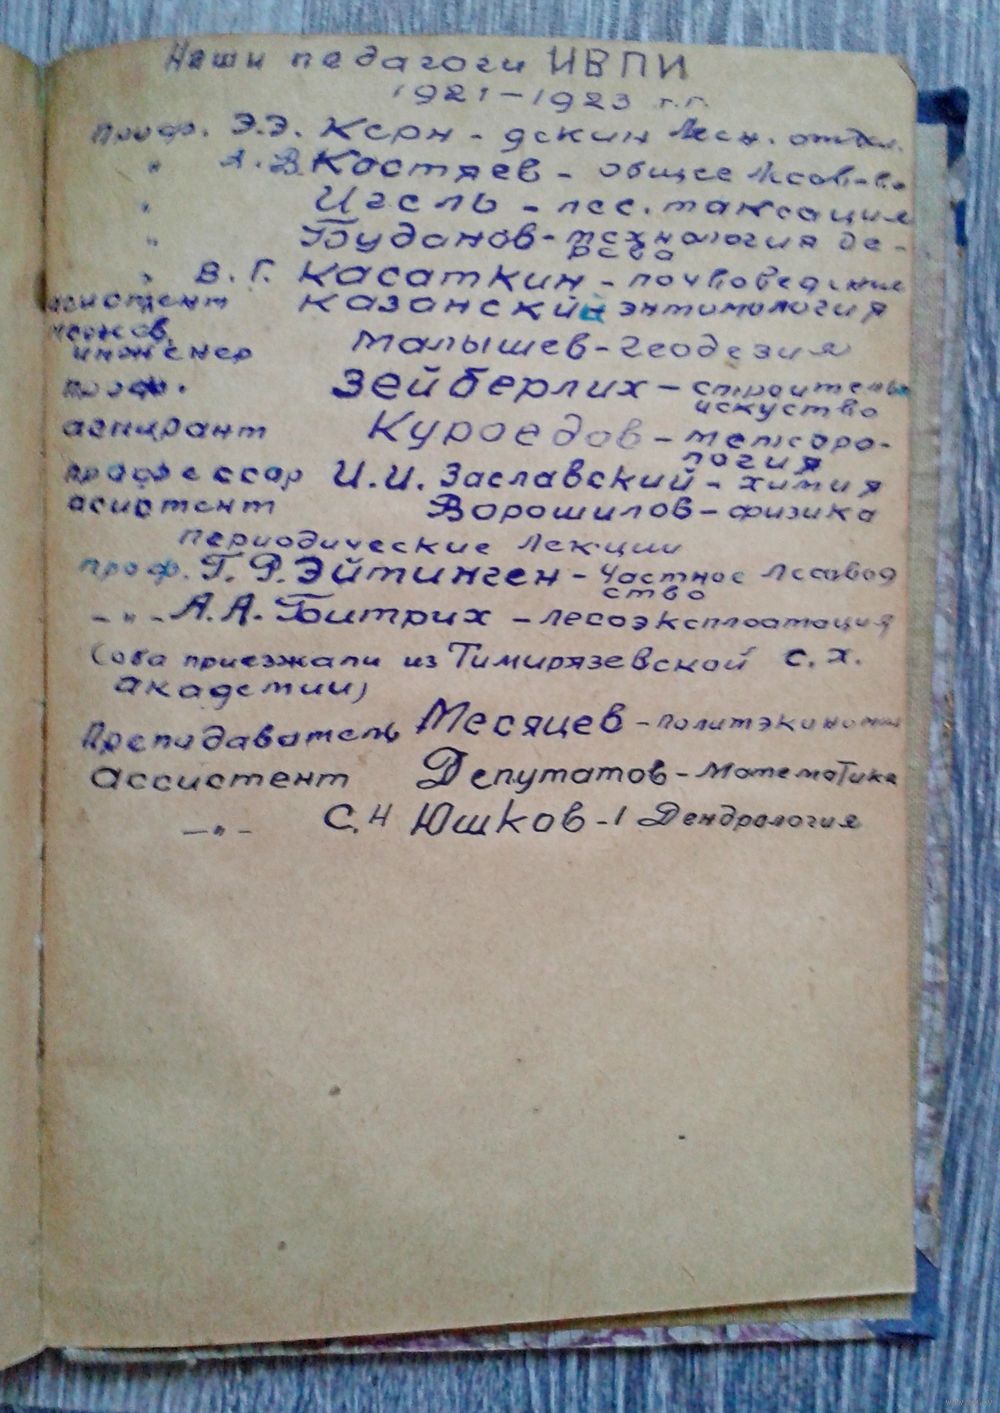 Наши педагоги ИВПИ
1921-1923 г.г.
проф. Э.Э. Керн - декин Лесн. отдел.
" А.В. Костяев - общее лесов-во
" Игель - лес. таксация
" Буданов - технология де-
рева
" В.Г. Касаткин - почвоведение
асистент Казанский энтимология
межов.
инженер Малышев - геодезия
проф. Зейберлих - строительн
искуство
аспирант Куроедов - метеоро-
логия
профессор И.И. Заславский - химия
асистент Ворошилов - физика
периодические лекции
проф. Г.Р. Эйтинген - Частное лесовод
ство
-"- А.А. Битрих - лесоэксплоатация
(оба приезжали из Тимирязевской с.х.
академии)
Преподаватель Месяцев - политэкиномия
ассистент Депутатов - Математика
-"- С.Н Юшков - Дендрология